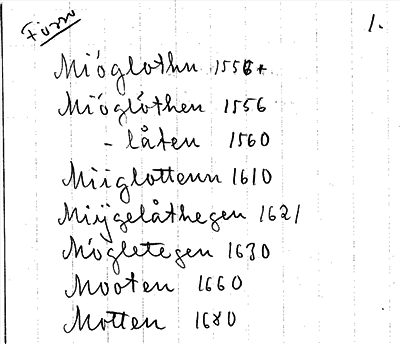 Försv 1.
Miöglothn 1556+
Miöglöthen 1556
- låten 1560
Miiglottenn 1610
Miÿgelåthegen 1621
Mögletegen 1630
Mooten 1660
Motten 1680